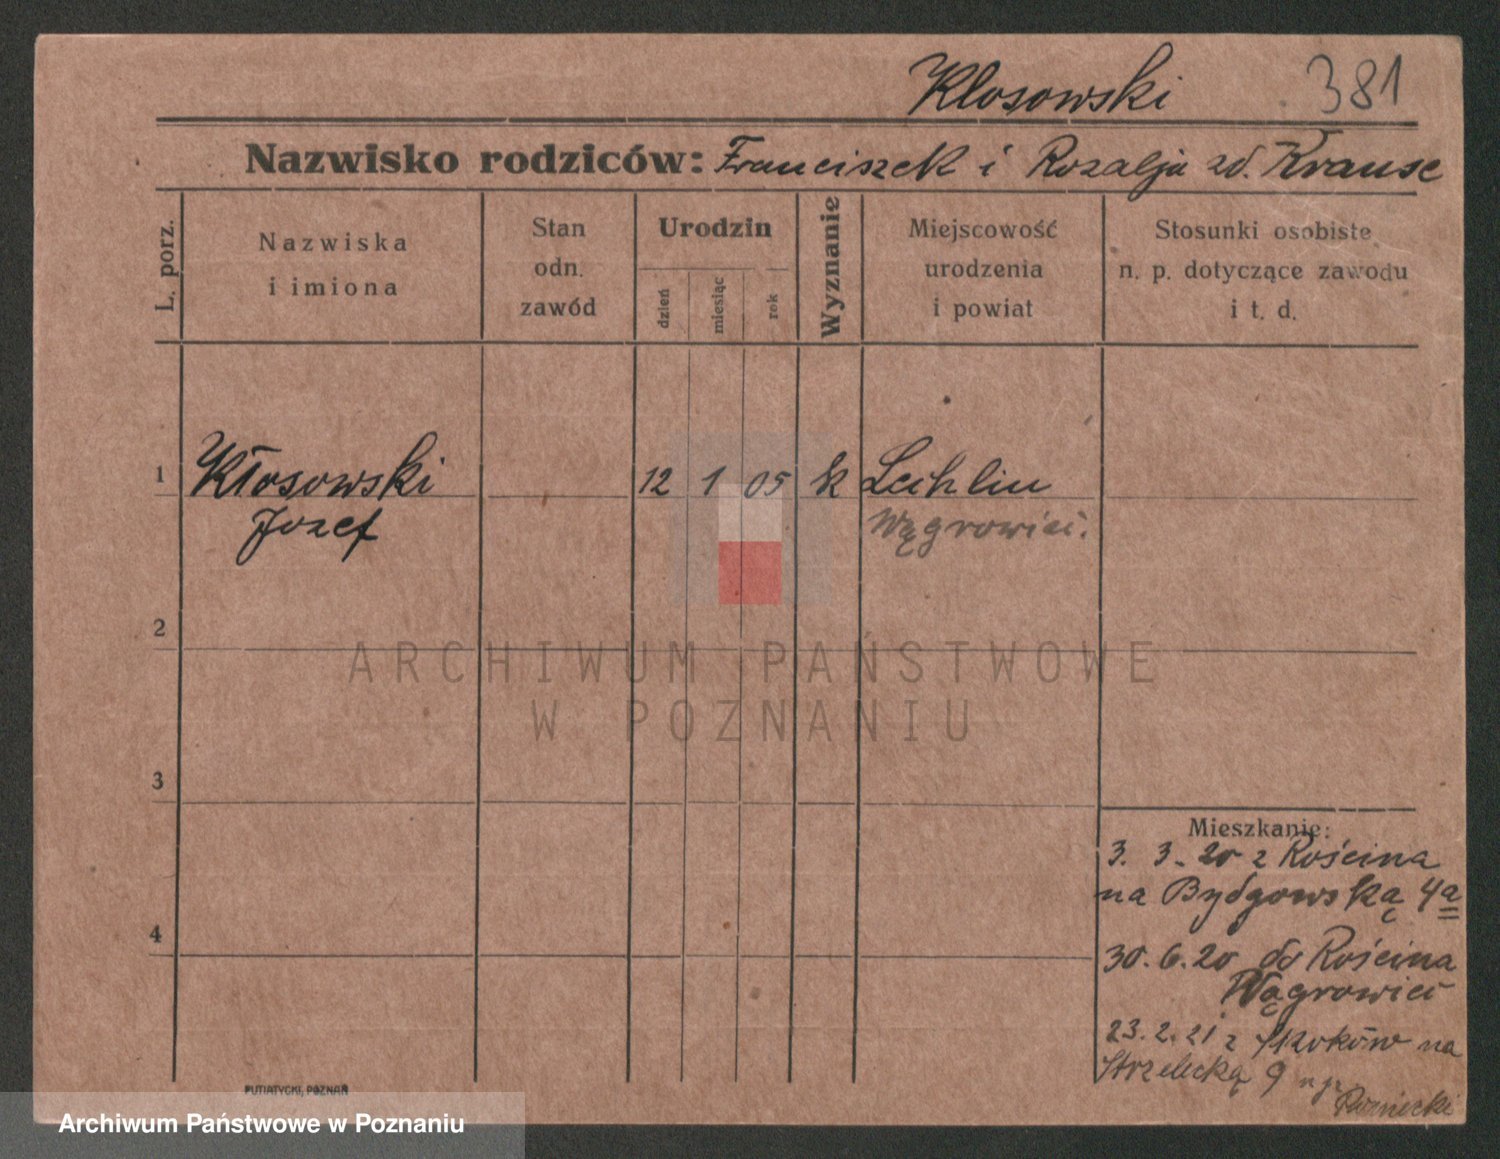 Kłosowski 381
Nazwisko rodziców: Franciszek i Rozalja zd. Krause
L. porz.
Nazwiska
i imiona
Stan
odn.
zawód
Urodzin
dzień
miesiąc
rok
Wyznanie
Miejscowość
urodzenia
i powiat
Stosunki osobiste
n. p. dotyczące zawodu
i t. d.
1 Kłosowski 12 1 05 k Lechlin
Jozef Wągrowiec.
2
ARCHIWUM PAŃSTWOWE
W POZNANIU
3
Mieszkanie:
3. 3. 20 z Rościna
na Bydgowską 4a
4
30. 6. 20 do Rościna
Wągrowiec
23. 2. 21 z Skoków na
Strzelecką 9
PUTIATYCKI, POZNAŃ
Archiwum Państwowe w Poznaniu